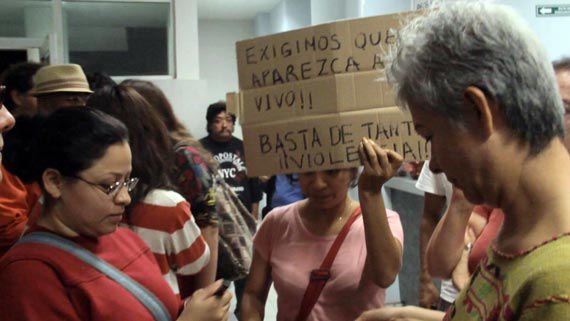 EXIGIMOS QUE
APAREZCA A
VIVO!!
BASTA DE TANT
¡¡VIOLENCIA!!
NYC